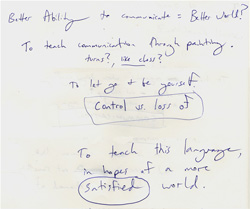 Better Ability to communicate = Better World?
To teach communication through painting.
turns?, like class?
To let go & be yourself.
Control vs. loss of
To teach this language,
in hopes of a more
satisfied world.